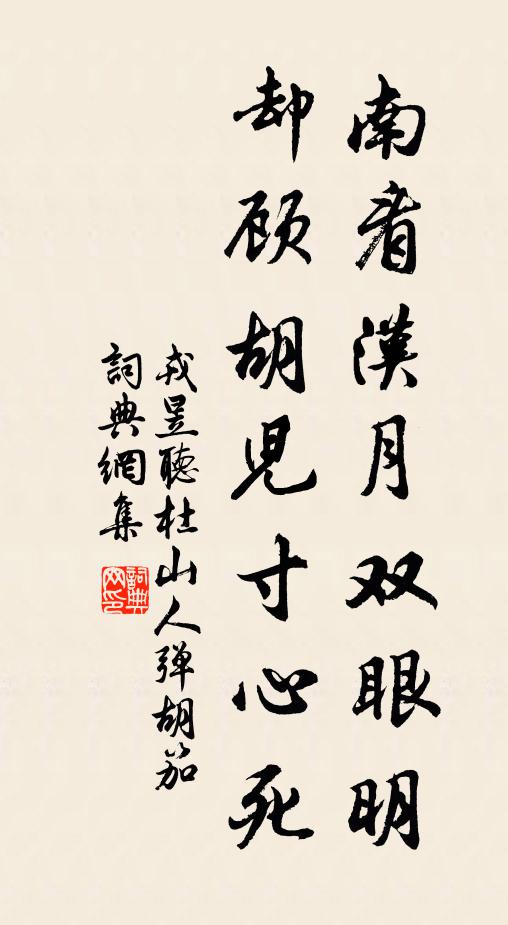 南看漢月双眼明
却顾胡児寸心死
戎昱聽杜山人弹胡笳
詞典網集
詞典网印